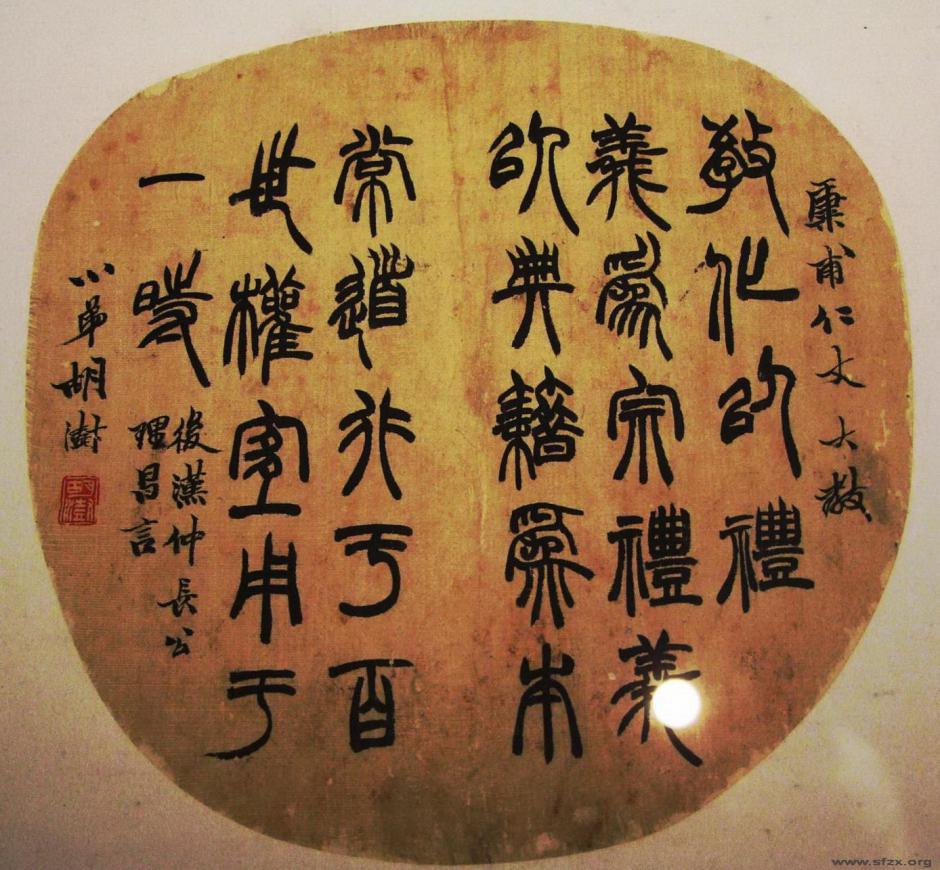 康甫仁丈大教
教化以禮
義爲宗禮義
以典籍爲本
常道行于百
世權宜用于
一時
後漢仲長公
理昌言
小弟胡澍
胡澍
www.sfzx.org